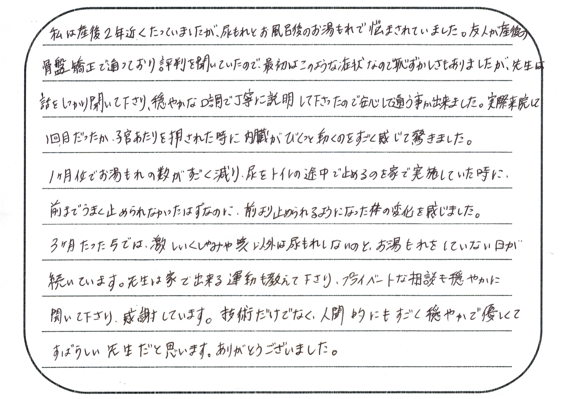 私は産後2年近くたっていましたが、尿もれとお風呂後のお湯もれで悩まされていました。友人が産後の
骨盤矯正で通っており評判を聞いていたので、最初はこのような症状なので恥ずかしさもありましたが、先生は
話をしっかり聞いて下さり、穏やかな口調で丁寧に説明して下さったので安心して通う事が出来ました。実際来院して
1回目だったか、3宮あたりを押された時に内臓がびくっと動くのをすごく感じて驚きました。
1ヶ月位でお湯もれの数がすごく減り、尿をトイレの途中で止めるのを家で実施していた時に、
前までうまく止められなかったはずなのに、前より止められるようになった体の変化を感じました。
3ヶ月たった今では、激しいくしゃみや笑い以外は尿もれしないのと、お湯もれをしていない日が
続いています。先生は家で出来る運動も教えて下さり、プライベートな相談も穏やかに
聞いて下さり、感謝しています。技術だけでなく、人間的にもすごく穏やかで優しくて
すばらしい先生だと思います。ありがとうございました。